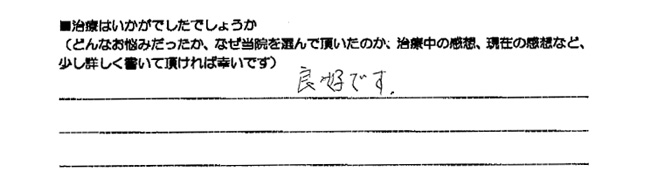 ■治療はいかがでしたでしょうか
（どんなお悩みだったか、なぜ当院を選んで頂いたのか、治療中の感想、現在の感想など、
少し詳しく書いて頂ければ幸いです）
良好です.